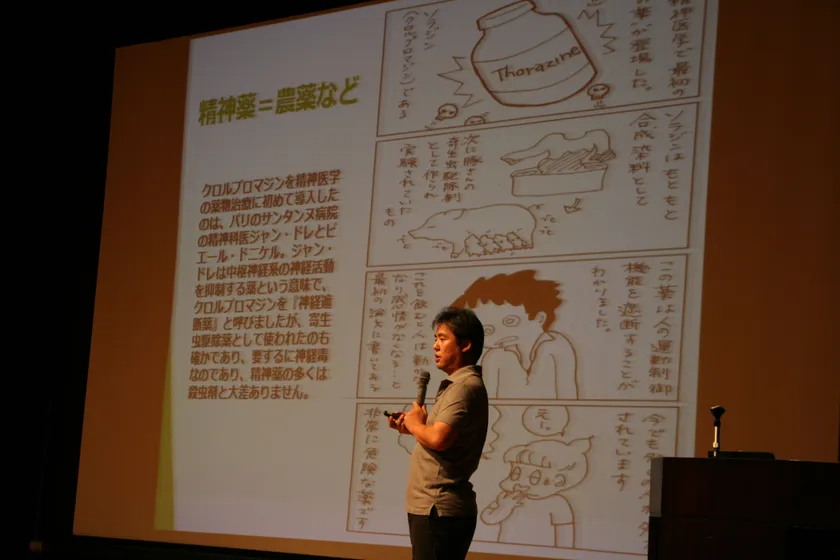 精神薬=農薬など
クロルプロマジンを精神医学
の薬物治療に初めて導入した
のは、パリのサンタンヌ病院
の精神科医ジャン・ドレとピ
エール・ドニケル。ジャン・
ドレは中枢神経系の神経活動
を抑制する薬という意味で、
クロルプロマジンを『神経遮
断薬』と呼びましたが、寄生
虫駆除薬として使われたのも
確かであり、要するに神経毒
なのであり、精神薬の多くは
殺虫剤と大差ありません。
精神医学で最初の
薬が登場した。
Thorazine
ソラジン
(クロルプロマジン)である
ソラジンはもともと
合成染料として
次に豚さんの
寄生虫駆除剤
として作られ
実験されていた
もの
この薬は人の運動制御
機能を遮断することが
わかりました。
これを飲むと人は動か
なり感情がなくなる…と
最初の論文に書いてある
今でも
されています
えっ。
非常に危険な薬です